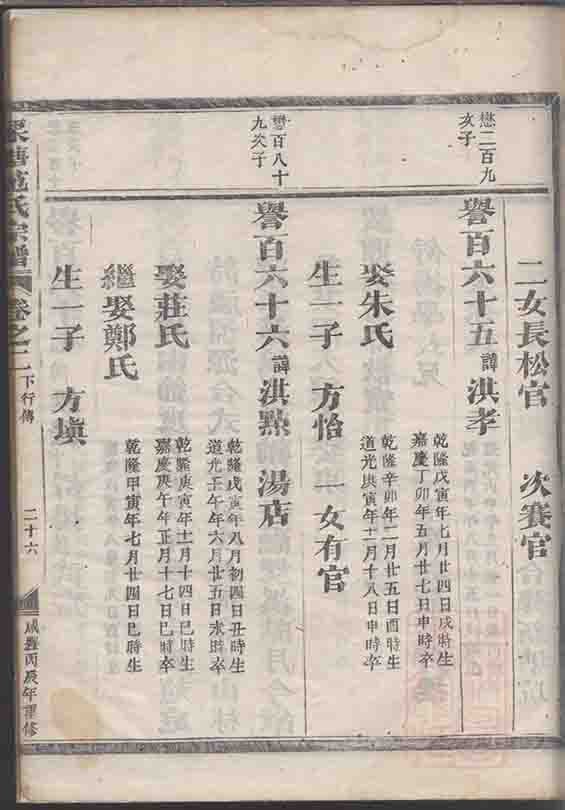 二女長松官 次賽官
懋二百九
亥子
譽百六十五諱洪孝
乾隆戊寅年七月廿四日戌時生
嘉慶丁卯年五月廿七日申時卒
娶朱氏
乾隆辛卯年二月廿五日酉時生
道光庚寅年十一月十八日申時卒
生一子 方怡 一女有官
懋百八十
九次子
譽百六十六諱洪點 湯店
乾隆戊寅年八月初四日丑時生
道光壬午年六月廿五日 時卒
娶莊氏
乾隆庚寅年十一月十四日巳時生
嘉慶庚午年正月十七日巳時卒
繼娶鄭氏
乾隆甲寅年七月廿四日巳時生
生一子 方塡
氏宗譜 卷之二 下行傳 二十六 咸豐丙辰年重修